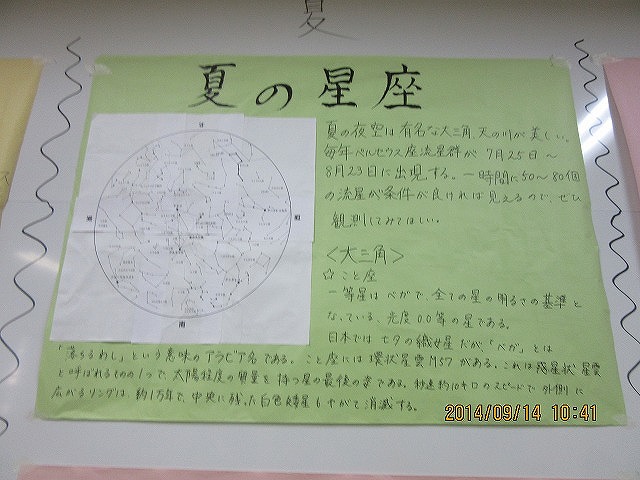 夏
夏の星座
夏の夜空は有名な大三角、天の川が美しい。
毎年ペルセウス座流星群が 7月25日〜
8月23日に出現する。一時間に50〜80個
の流星が条件が良ければ見えるので、ぜひ
観測してみてほしい。
<大三角>
☆こと座
一等星はベガで、全ての星の明るさの基準と
なっている、光度0.0等の星である。
日本では七夕の織女星だが「ベガ」とは
「落ちるわし」という意味のアラビア名である。こと座には環状星雲M57がある。これは惑星状星雲
と呼ばれるものの1つで、太陽程度の質量を持つ星の最後の姿である。秒速約10キロのスピードで外側に
広がるリングは、約1万年で、中央に残った白色矮星もやがて消滅する。
北
南
2014/09/14 10:41